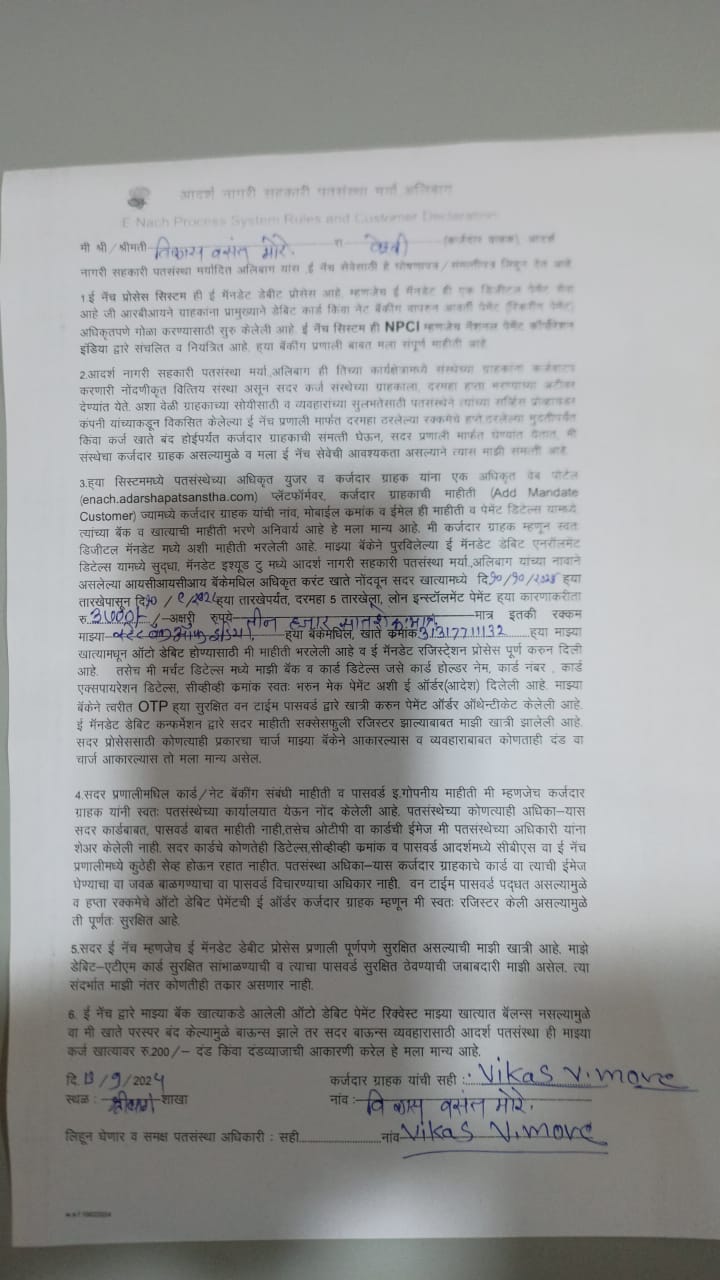 आदर्श नागरी सहकारी पतसंस्था मर्या अलिबाग
E Nach Process System Rules and Customer Declaration
मी श्री / श्रीमती विकास वसंत मोरे. रा (कर्जदार ग्राहक) आदर्श
नागरी सहकारी पतसंस्था मर्यादित अलिबाग यांस ,ई नॅच सेवेसाठी हे घोषणापत्र / संमतीपत्र लिहून देत आहे
1.ई नॅच प्रोसेस सिस्टम ही ई मॅनडेट डेबीट प्रोसेस आहे. म्हणजेच ई मॅनडेट ही एक डिजीटल पेमेंट सेवा
आहे जी आरबीआयने ग्राहकांना प्रामुख्याने डेबिट कार्ड किंवा नेट बॅंकींग वापरुन आवर्ती पेमेंट (रिकरींग पेमेंट)
अधिकृतपणे गोळा करण्यासाठी सुरु केलेली आहे. ई नॅच सिस्टिम ही NPCI म्हणजेच नॅशनल पेमेंट कॉर्पोरेशन
इंडिया द्वारे संचलित व नियंत्रित आहे. ह्या बॅंकींग प्रणाली बाबत मला संपूर्ण माहीती आहे.
2.आदर्श नागरी सहकारी पतसंस्था मर्या.,अलिबाग ही तिच्या कार्यक्षेत्रामध्ये संस्थेच्या ग्राहकांना कर्जवाटप
करणारी नोंदणीकृत वित्तिय संस्था असून सदर कर्ज संस्थेच्या ग्राहकाला, दरमहा हप्ता भरण्याच्या अटीवर
देण्यांत येते. अशा वेळी ग्राहकाच्या सोयीसाठी व व्यवहारांच्या सुलभतेसाठी पतसंस्थेने त्यांच्या सर्व्हिस प्रोव्हायडर
कंपनी यांच्याकडून विकसित केलेल्या ई नॅच प्रणाली मार्फत दरमहा ठरलेल्या रक्कमेचे हप्ते,ठरलेल्या मुदतीपर्यंत
किंवा कर्ज खाते बंद होईपर्यंत कर्जदार ग्राहकाची संमत्ती घेऊन, सदर प्रणाली मार्फत घेण्यांत येतात. मी
संस्थेचा कर्जदार ग्राहक असल्यामुळे व मला ई नॅच सेवेची आवश्यकता असल्याने त्यास माझी संमत्ती आहे.
3.ह्या सिस्टममध्ये पतसंस्थेच्या अधिकृत युजर व कर्जदार ग्राहक यांना एक अधिकृत वेब पोर्टल
(enach.adarshapatsanstha.com) प्लॅटफॉर्मवर, कर्जदार ग्राहकाची माहीती (Add Mandate
Customer) ज्यामध्ये कर्जदार ग्राहक यांची नांव, मोबाईल कमांक व ईमेल ही माहीती व पेमेंट डिटेल्स यामध्ये
त्यांच्या बॅंक व खात्याची माहीती भरणे अनिवार्य आहे हे मला मान्य आहे. मी कर्जदार ग्राहक म्हणून स्वतः
डिजीटल मॅनडेट मध्ये अशी माहीती भरलेली आहे. माझ्या बॅंकेने पुरविलेल्या ई मॅनडेट डेबिट एनरॉलमेंट
डिटेल्स यामध्ये सुद्धा, मॅनडेट इश्यूड टु मध्ये आदर्श नागरी सहकारी पतसंस्था मर्या.,अलिबाग यांच्या नावाने
असलेल्या आयसीआयसीआय बॅंकेमधिल अधिकृत करंट खाते नोंदवून सदर खात्यामध्ये दि. ह्या
तारखेपासून दि. ह्या तारखेपर्यंत, दरमहा 5 तारखेला, लोन इन्स्टॉलमेंट पेमेंट ह्या कारणाकरीता
रु. /- अक्षरी रुपये तीन हजार सातशे मात्र इतकी रक्कम
माझ्या स्टेट बॅंक ऑफ इंडिया. ह्या बॅंकेमधिल, खाते कमांक 31317711132 ह्या माझ्या
खात्यामधून ऑटो डेबिट होण्यासाठी मी माहीती भरलेली आहे व ई मॅनडेट रजिस्ट्रेशन प्रोसेस पूर्ण करुन दिली
आहे. तसेच मी मर्चंट डिटेल्स मध्ये माझी बॅंक व कार्ड डिटेल्स जसे कार्ड होल्डर नेम, कार्ड नंबर , कार्ड
एक्सपायरेशन डिटेल्स, सीव्हीव्ही कमांक स्वतः भरुन मेक पेमेंट अशी ई ऑर्डर(आदेश) दिलेली आहे. माझ्या
बॅंकेने त्वरीत OTP ह्या सुरक्षित वन टाईम पासवर्ड द्वारे खात्री करुन पेमेंट ऑर्डर ऑथेन्टीकेट केलेली आहे.
ई मॅनडेट डेबिट कन्फर्मेशन द्वारे सदर माहीती सक्सेसफुली रजिस्टर झाल्याबाबत माझी खात्री झालेली आहे.
सदर प्रोसेससाठी कोणत्याही प्रकारचा चार्ज माझ्या बॅंकेने आकारल्यास व व्यवहाराबाबत कोणताही दंड वा
चार्ज आकारल्यास तो मला मान्य असेल.
4.सदर प्रणालीमधिल कार्ड/नेट बॅंकींग संबंधी माहीती व पासवर्ड इ.गोपनीय माहीती मी म्हणजेच कर्जदार
ग्राहक यांनी स्वतः पतसंस्थेच्या कार्यालयात येऊन नोंद केलेली आहे. पतसंस्थेच्या कोणत्याही अधिका–यास
सदर कार्डबाबत, पासवर्ड बाबत माहीती नाही,तसेच ओटीपी वा कार्डची ईमेज मी पतसंस्थेच्या अधिकारी यांना
शेअर केलेली नाही. सदर कार्डचे कोणतेही डिटेल्स,सीव्हीव्ही कमांक व पासवर्ड आदर्शमध्ये सीबीएस वा ई नॅच
प्रणालीमध्ये कुठेही सेव्ह होऊन रहात नाहीत. पतसंस्था अधिका–यास कर्जदार ग्राहकाचे कार्ड वा त्याची ईमेज
घेण्याचा वा जवळ बाळगण्याचा वा पासवर्ड विचारण्याचा अधिकार नाही. वन टाईम पासवर्ड पद्धत असल्यामुळे
व हप्ता रक्कमेचे ऑटो डेबिट पेमेंटची ई ऑर्डर कर्जदार ग्राहक म्हणून मी स्वतः रजिस्टर केली असल्यामुळे
ती पूर्णतः सुरक्षित आहे.
5.सदर ई नॅच म्हणजेच ई मॅनडेट डेबीट प्रोसेस प्रणाली पूर्णपणे सुरक्षित असल्याची माझी खात्री आहे. माझे
डेबिट–एटीएम कार्ड सुरक्षित सांभाळण्याची व त्याचा पासवर्ड सुरक्षित ठेवण्याची जबाबदारी माझी असेल. त्या
संदर्भात माझी नंतर कोणतीही तक्रार असणार नाही.
6. ई नॅच द्वारे माझ्या बॅंक खात्याकडे आलेली ऑटो डेबिट पेमेंट रिक्वेस्ट माझ्या खात्यात बॅलन्स नसल्यामुळे
वा मी खाते परस्पर बंद केल्यामुळे बाऊन्स झाले तर सदर बाऊन्स व्यवहारासाठी आदर्श पतसंस्था ही माझ्या
कर्ज खात्यावर रु.200/– दंड किंवा दंडव्याजाची आकारणी करेल हे मला मान्य आहे.
दि. 13/9/2024 कर्जदार ग्राहक यांची सही : Vikas V. more
स्थळ : शाखा नांव :– विकास वसंत मोरे.
लिहून घेणार व समक्ष पतसंस्था अधिकारी : सही नांव Vikas V. more